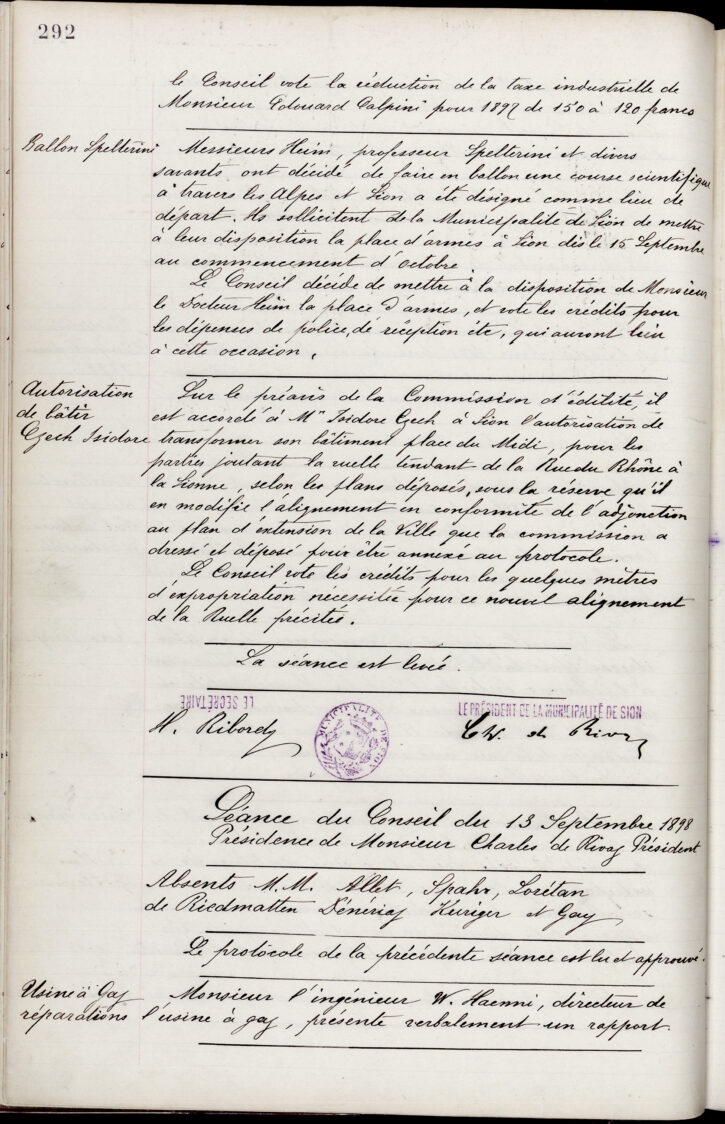 292
le Conseil vote la réduction de la taxe industrielle de
Monsieur Edouard Calpini pour 1897 de 150 à 120 francs
Ballon Spelterini
Messieurs Heim, professeur Spelterini et divers
savants ont décidé de faire en ballon une course scientifique
à travers les Alpes et Sion a été désigné comme lieu de
départ. Ils sollicitent de la Municipalité de Sion de mettre
à leur disposition la place d'armes à Sion dès le 15 Septembre
au commencement d'octobre.
Le Conseil décide de mettre à la disposition de Monsieur
le Docteur Heim la place d'armes, et vote les crédits pour
les dépenses de police, de réception etc, qui auront lieu
à cette occasion.
Autorisation
de bâtir
Czech Isidore
Sur le préavis de la Commission d'édilité, il
est accordé à Mr Isidore Czech à Sion l'autorisation de
transformer son bâtiment place du Midi, pour les
parties joutant la ruelle tendant de la Rue du Rhône à
la Sionne, selon les plans déposés, sous la réserve qu'il
en modifie l'alignement en conformité de l'adjonction
au plan d'extension de la Ville que la commission a
dressé et déposé pour être annexé au protocole.
Le Conseil vote les crédits pour les quelques mètres
d'expropriation nécessitée pour ce nouvel alignement
de la Ruelle précitée.
La séance est levée.
LE SECRÉTAIRE
LE PRÉSIDENT DE LA MUNICIPALITÉ DE SION
H. Ribordy
MUNICIPALITÉ DE SION
Ch. de Rivaz
Séance du Conseil du 13 Septembre 1898
Présidence de Monsieur Charles de Rivaz Président
Absents M.M. Allet, Spahr, Lorétan
de Riedmatten Dénériaz Kuriger et Gay
Le protocole de la précédente séance est lu et approuvé.
Usine à Gaz
réparations
Monsieur l'ingénieur W. Haenni, directeur de
l'usine à gaz, présente verbalement un rapport.